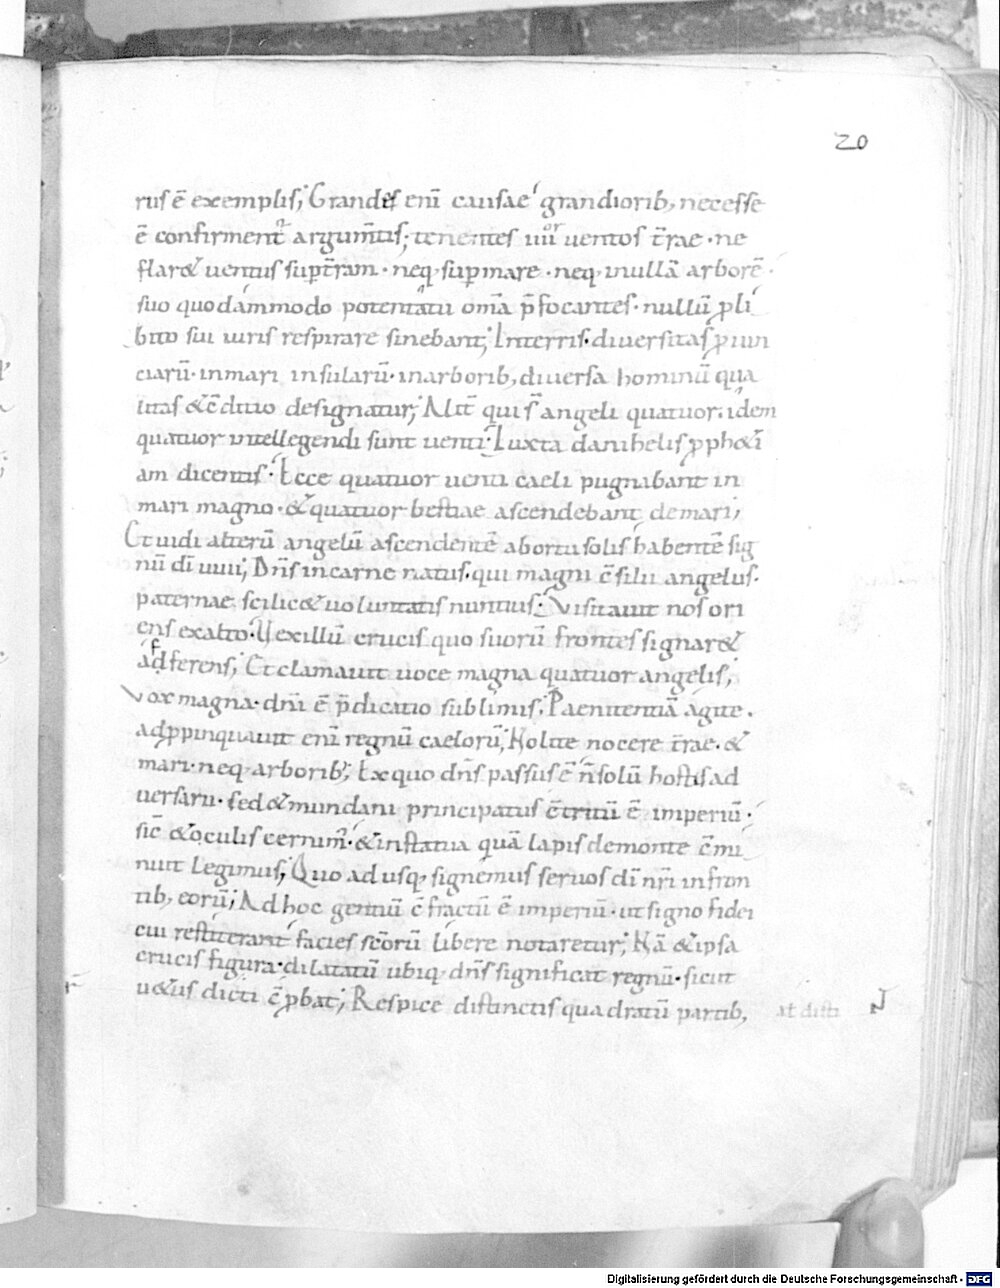 20
rus ē exemplis; Grandes enī causae grandiorib; necesse
ē confirment argum̄tis; tenentes iiiior ventos t̄rae · ne
flar& uentus sup t̄ram · neq; sup mare · neq; in ullā arborē ·
suo quodammodo potentatu om̄a p̄focantes · nullū pli
bito sui iuris respirare sinebant; In terris · diuersitas prouin
ciarū · in mari insularū · in arborib; diuersa hominū qua
litas & c̄ditio designatur; Alit̄ qui s̄ angeli quatuor · idem
quatuor intellegendi sunt uenti · Iuxta danihelis pph&i
am dicentis · Ecce quatuor uenti caeli pugnabant in
mari magno · & quatuor bestiae ascendebant de mari;
Et uidi alterū angelū ascendentē ab ortu solis habentē sig
nū dī uiui; Dn̄s in carne natus · qui magni c̄silii angelus ·
paternae scilic& uoluntatis nuntius · Visitauit nos ori
ens ex alto · Vexillū crucis quo suorū frontes signar&
adferens; Et clamauit uoce magna quatuor angelis;
Vox magna · dn̄i ē p̄dicatio sublimis; Paenitentiā agite ·
adppinquauit enī regnū caelorū; Nolite nocere t̄rae · &
mari · neq; arborib; Ex quo dn̄s passus ē n̄ solū hostis ad
uersarii · sed & mundani principatus c̄tritū ē imperiū ·
sic & oculis cernim; · & in statua quā lapis de monte c̄mi
nuit legimus; Quo adusq; signemus seruos dī nr̄i in fron
tib; eorū; Ad hoc gentiū c̄fractū ē imperiū · ut signo fidei
cui restiterant facies sc̄orū libere notaretur; Nā & ipsa
crucis figura · dilatatū ubiq; dn̄s significat regnū · sicut
u&us dicti c̄pbat; Respice distinctis quadratū partib;
Digitalisierung gefördert durch die Deutsche Forschungsgemeinschaft · DFG